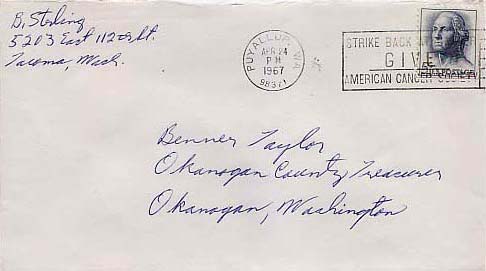 B. Sterling
5203 East 112th St.
Tacoma, Wash.
PUYALLUP, WA
APR 24
PM
1967
98371
STRIKE BACK
GIVE
AMERICAN CANCER SOCIETY
5c
Benner Taylor
Okanogan County Treasurer
Okanogan, Washington